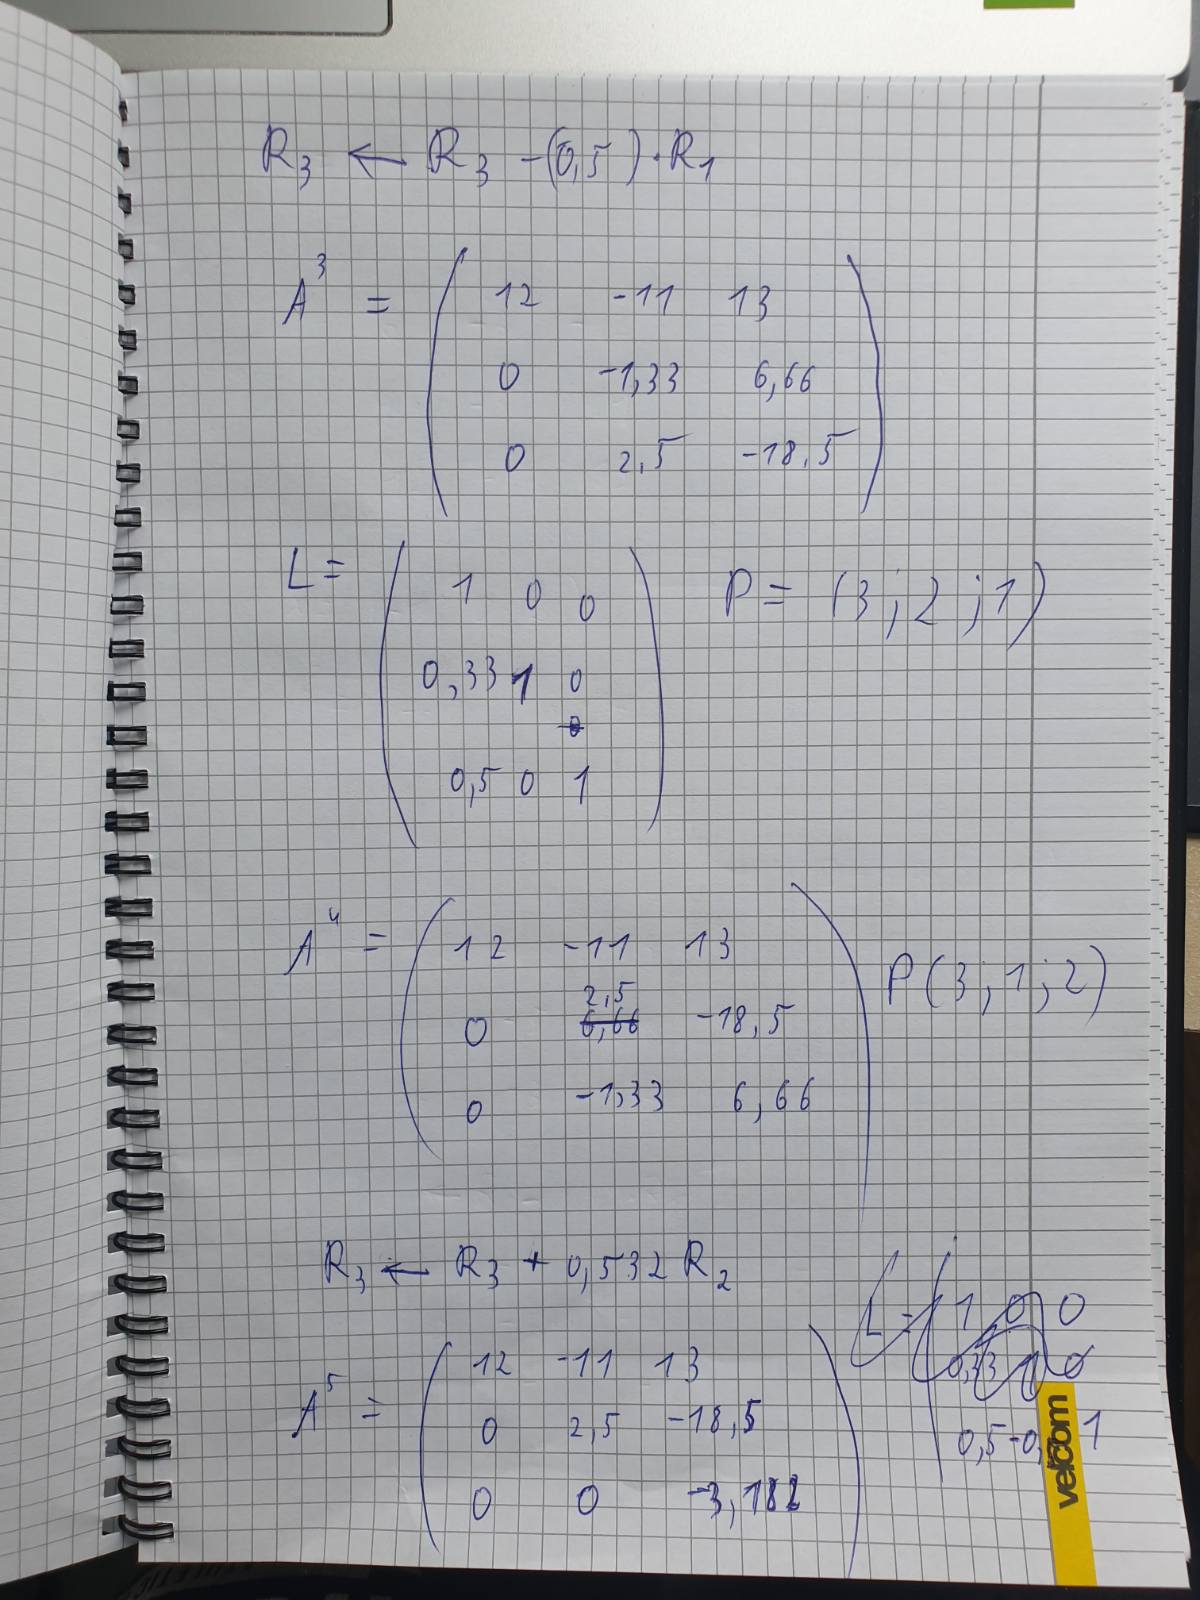 R₃ ← R₃ -(0,5)·R₁
A³ = ( 12 -11 13
0 -1,33 6,66
0 2,5 -18,5 )
L = ( 1 0 0
0,33 1 0
0
0,5 0 1 )
P = (3; 2; 1)
A⁴ = ( 12 -11 13
2,5
0 6,66 -18,5
0 -1,33 6,66 )
P(3; 1; 2)
R₃ ← R₃ + 0,532 R₂
A⁵ = ( 12 -11 13
0 2,5 -18,5
0 0 -3,182 )
L = ( 1 0 0
0,33 1 0
0,5 -0, 1
velcom